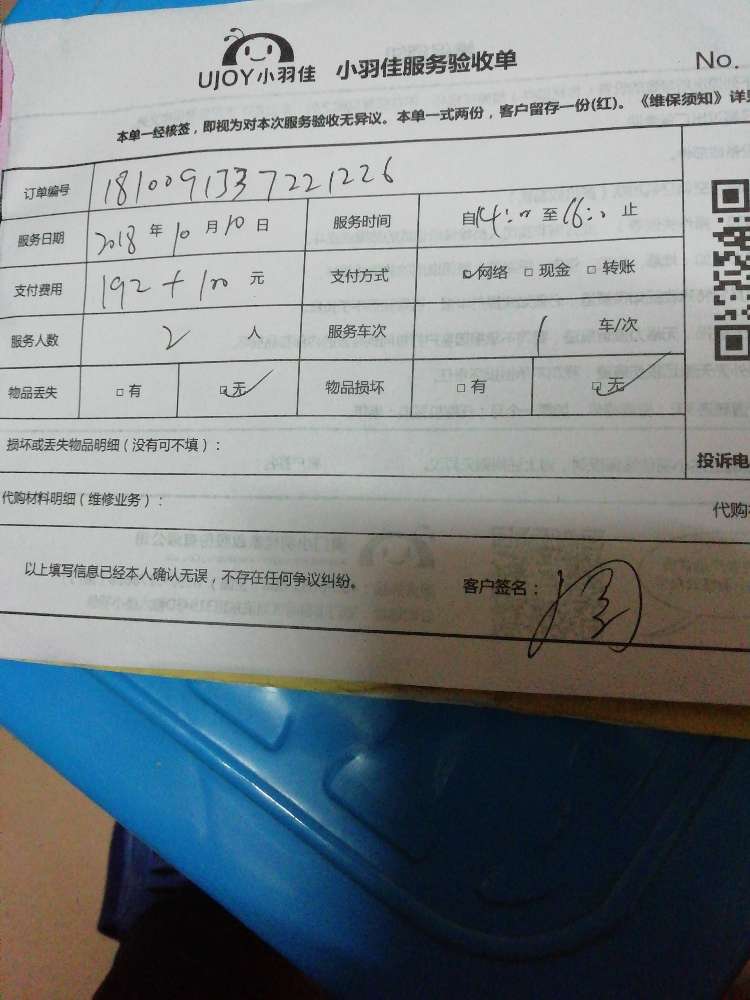 UJOY小羽佳 小羽佳服务验收单 No.
本单一经核签，即视为对本次服务验收无异议。本单一式两份，客户留存一份(红)。《维保须知》详见
订单编号 1810091337221226
服务日期 2018 年 10 月 10 日 服务时间 自 14:00 至 16:00 止
支付费用 192+100 元 支付方式 □网络 □现金 □转账
服务人数 2 人 服务车次 1 车/次
物品丢失 □有 □无 物品损坏 □有 □无
损坏或丢失物品明细（没有可不填）：
投诉电
代购材料明细（维修业务）：
代购
以上填写信息已经本人确认无误，不存在任何争议纠纷。 客户签名：